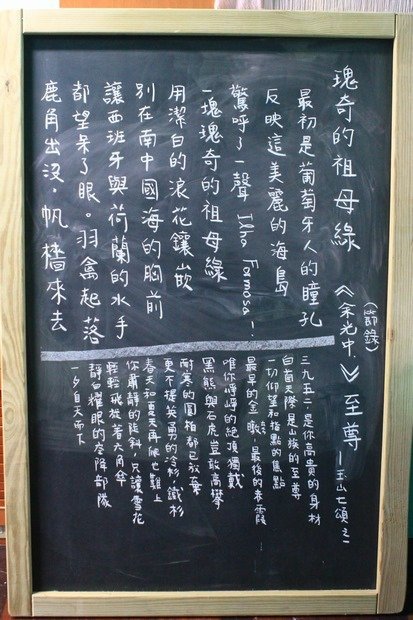 瑰奇的祖母綠
(節錄)
《余光中》
最初是葡萄牙人的瞳孔
反映這美麗的海島
驚呼了一聲 Ilha Formosa!
一塊瑰奇的祖母綠
用潔白的浪花鑲嵌
別在南中國海的胸前
讓西班牙與荷蘭的水手
都望呆了眼。羽禽起落
鹿角出沒，帆檣來去
至尊 —玉山七頌之一
三九五二，是你高貴的身材
天際是山族的至尊
一切仰望和指點的焦點
最早的金曦，最後的赤霞
唯你崢崢的絕頂獨戴
黑熊與石虎豈敢高攀
耐寒的圓柏都已放棄
更不提英勇的冷杉，鐵杉
春天和夏天再爬也難上
你肅靜的陡斜，只讓雪花
輕輕飛旋著六角傘
靜白耀眼的空降部隊
一夕自天而下